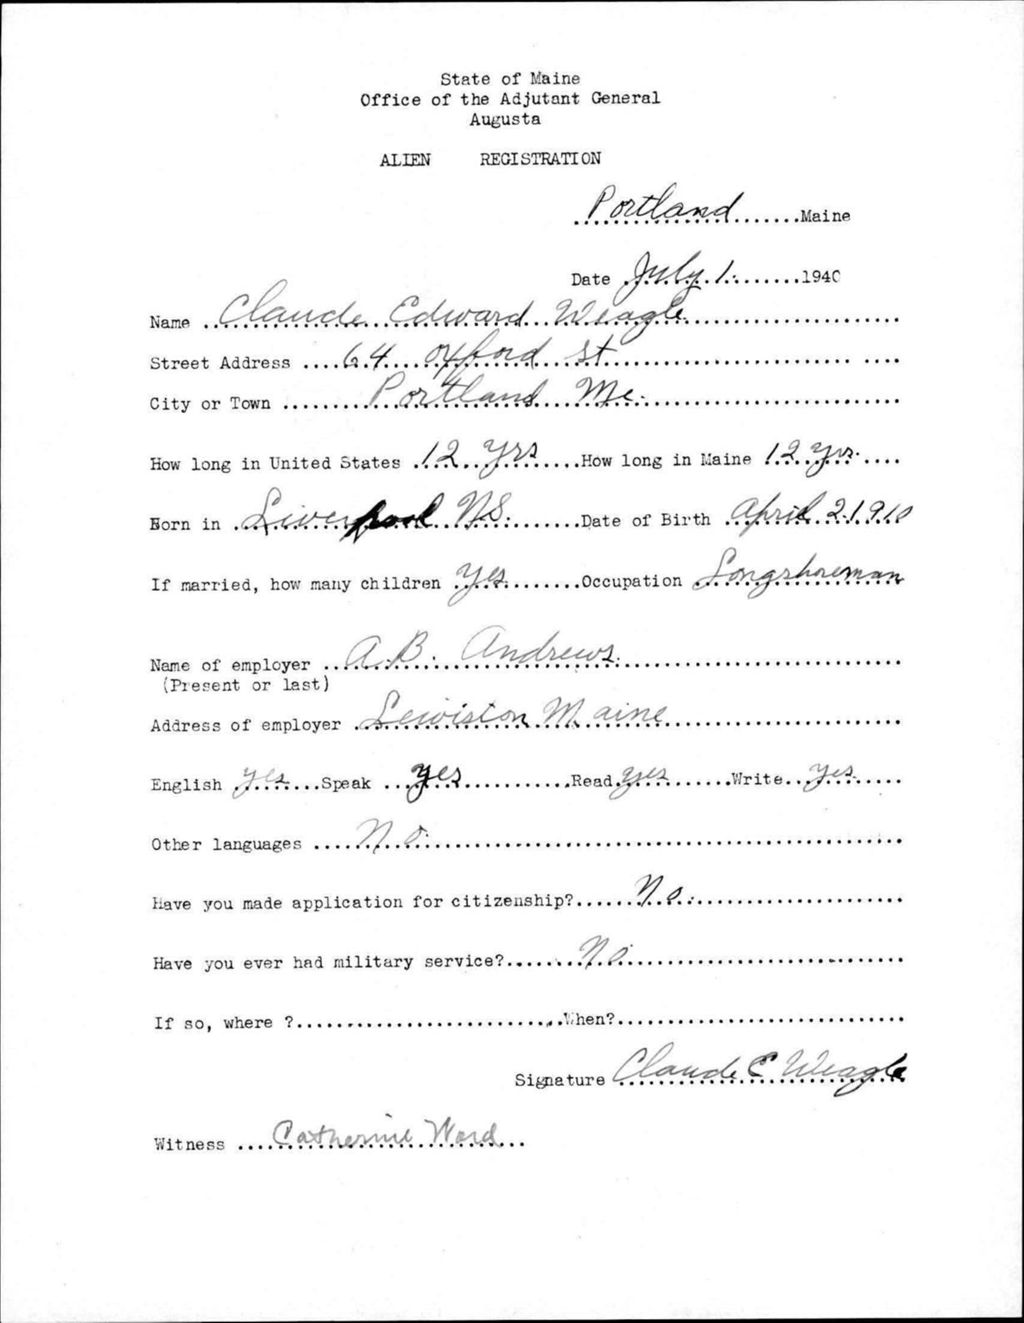 State of Maine
Office of the Adjutant General
Augusta
ALIEN REGISTRATION
Portland Maine
Date July 1. 1940
Name Claude Edward Weagle
Street Address 64 Oxford St
City or Town Portland Me.
How long in United States 12 yrs How long in Maine 12 yrs.
Born in Liverpool N.S. Date of Birth April 2 1910
If married, how many children yes Occupation Longshoreman
Name of employer A.B. Andrews.
(Present or last)
Address of employer Lewiston Maine
English yes Speak yes Read yes Write yes
Other languages No.
Have you made application for citizenship? No.
Have you ever had military service? No.
If so, where ? When?
Signature Claude E Weagle
Witness Catherine Ward